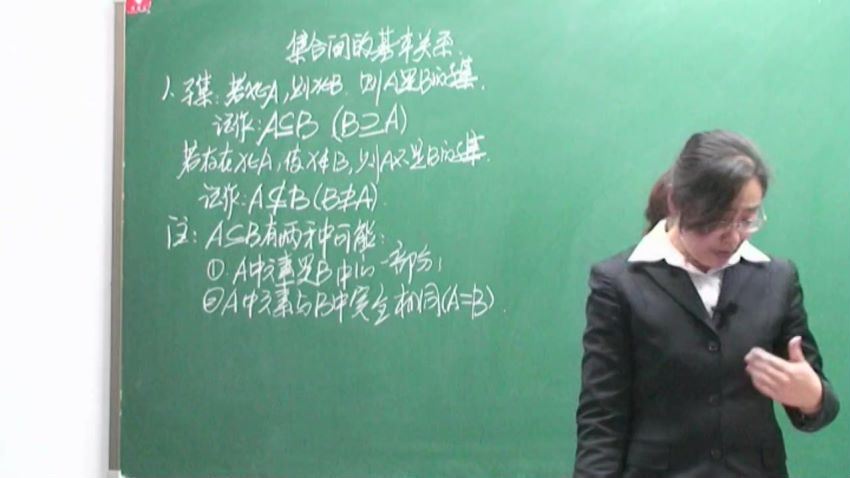 集合间的基本关系.
1. 子集: 若x∈A, 则x∈B. 则A是B的子集.
记作: A⊆B (B⊇A)
若存在x∈A, 使x∉B, 则A不是B的子集.
记作: A⊈B (B⊉A).
注: A⊆B有两种可能:
①. A中元素是B中的一部分;
②A中元素与B中完全相同(A=B).